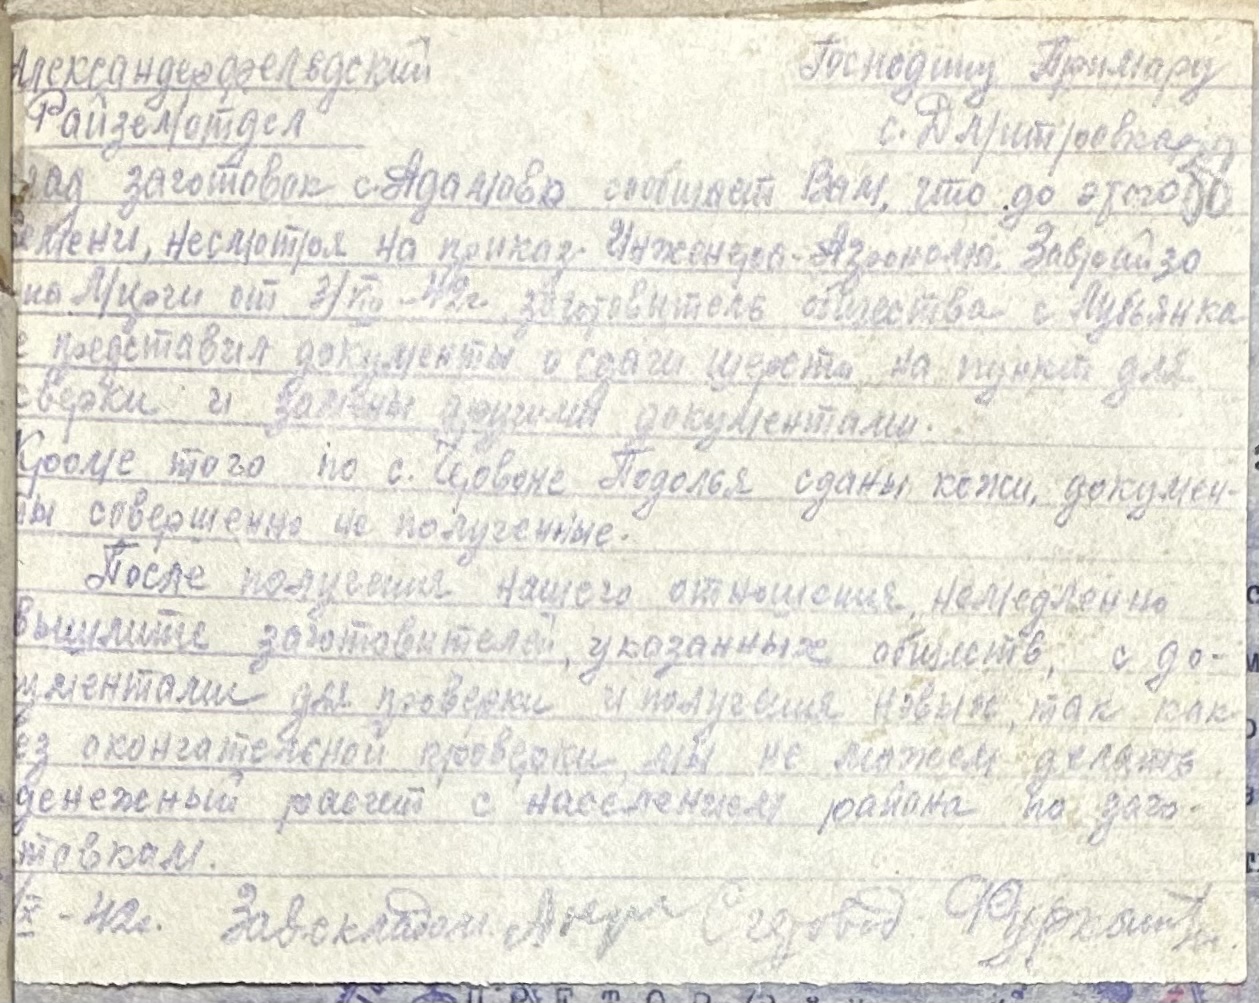 Александерфельдский Господину Примарю
Райземотдел с. Дмитровка
50
заготовок с. Адамовка сообщает Вам, что до этого
несмотря на приказ Инженера-Агронома
от 42г. заготовитель общества с. Лубянка
представил документы о сдачи шерсти на пункт для
сверки и замены другими документами.
Кроме того по с. Червоне Подолья сданы кожи, докумен-
ты совершенно не полученные.
После получения нашего отношения, немедленно
вышлите заготовителей, указанных обществ, с до-
ументами для проверки и получения новых, так как
ез окончательной проверки, мы не можем делать
денежный расчет с населением района по заго-
товкам.
X - 42г. Завскладом